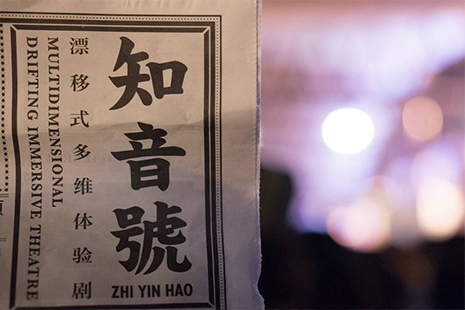 知音號
ZHI YIN HAO
漂移式多维体验剧
MULTIDIMENSIONAL
DRIFTING IMMERSIVE THEATRE